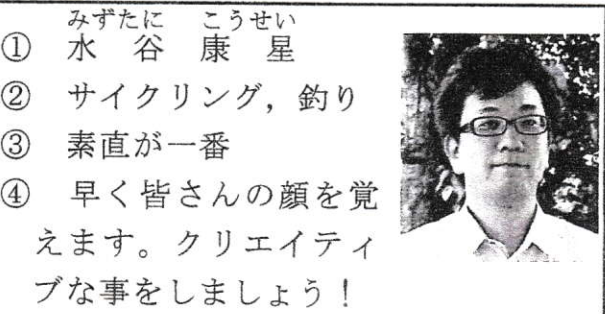 みずたに　こうせい
①　水　谷　康　星
②　サイクリング，釣り
③　素直が一番
④　早く皆さんの顔を覚
えます。クリエイティ
ブな事をしましょう！